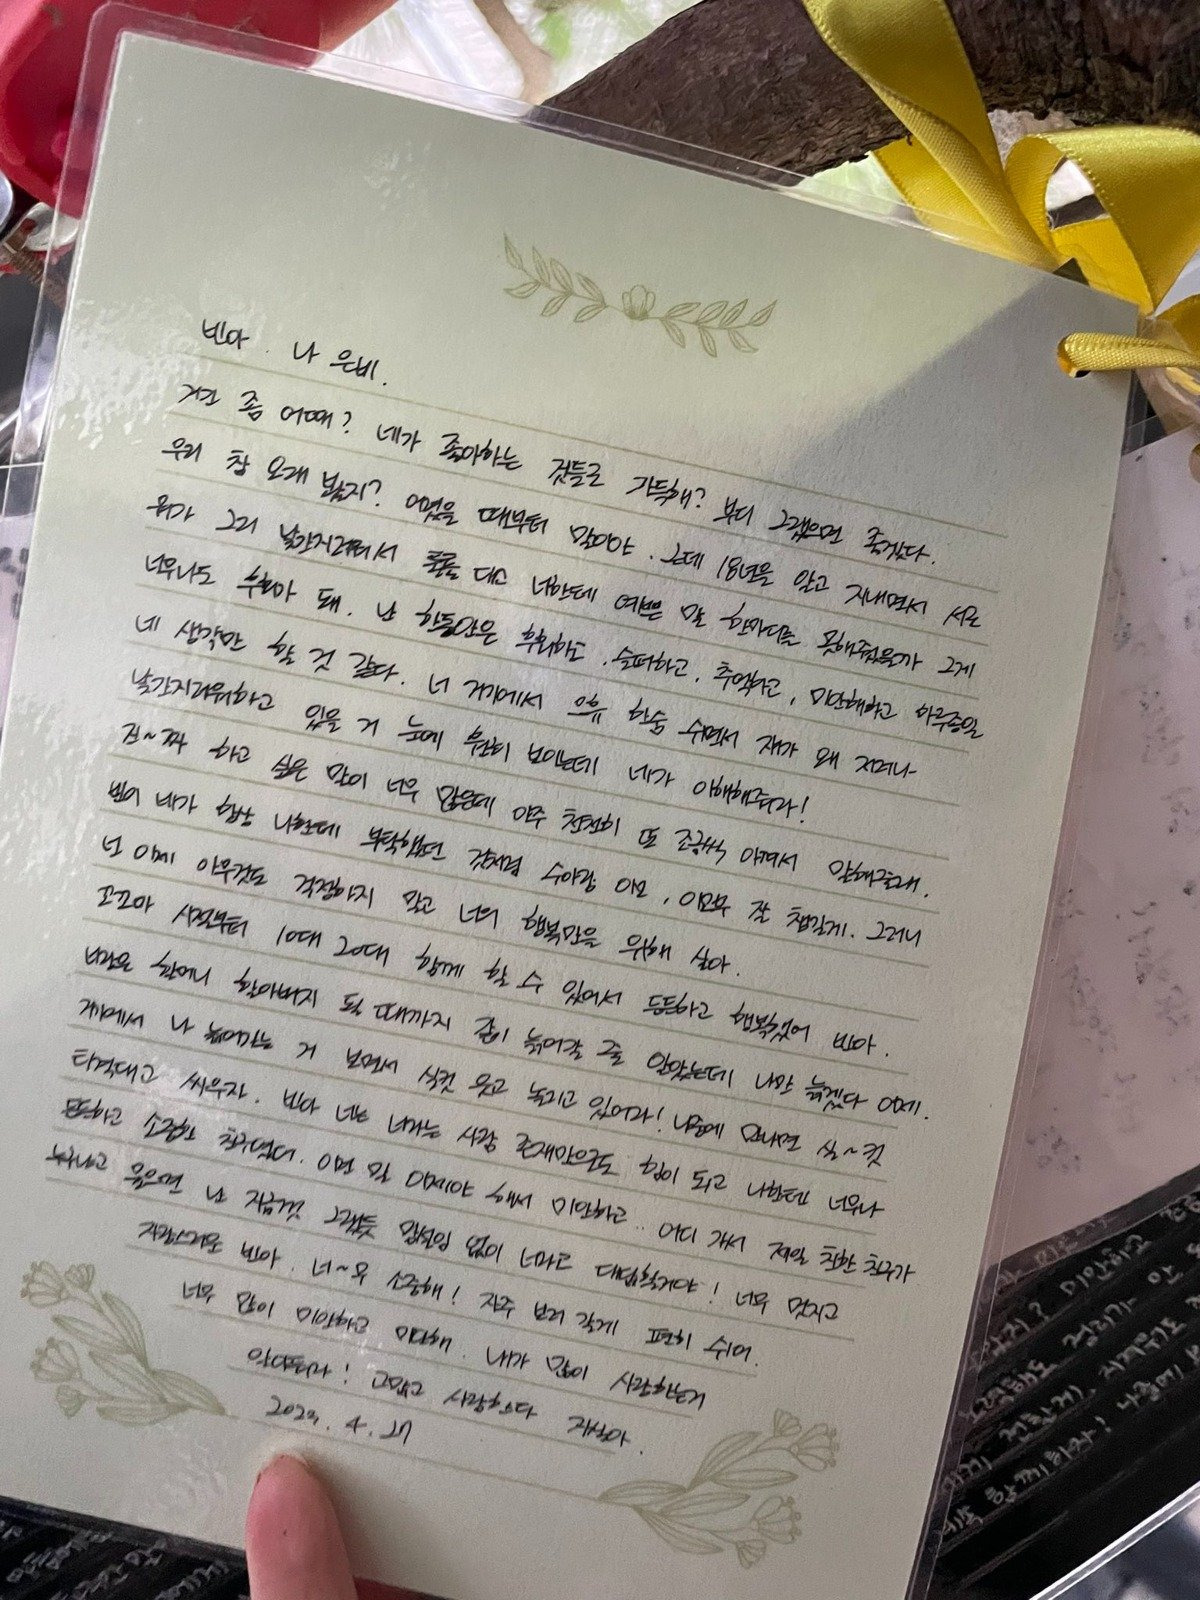 빈아. 나 은비.
거긴 좀 어때? 네가 좋아하는 것들로 가득해? 부디 그랬으면 좋겠다.
우리 참 오래 봤지? 어렸을 때부터 말이야. 근데 18년을 알고 지내면서 서로
뭐가 그리 낯간지러워서 툴툴 대고 너한테 예쁜 말 한마디를 못해줬을까 그게
너무나도 후회가 돼. 난 한동안은 후회하고, 슬퍼하고, 추억하고, 미안해하고 하루종일
네 생각만 할 것 같다. 너 거기에서 어휴 한숨 쉬면서 쟤가 왜 저러나
낯간지러워하고 있을 거 눈에 훤히 보이는데 네가 이해해주라!
진~짜 하고 싶은 말이 너무 많은데 아주 천천히 또 조금씩 아껴서 말해줄래.
빈이 네가 항상 나한테 부탁했던 것처럼 수아랑 이모, 이모부 잘 챙길게. 그러니
넌 이제 아무것도 걱정하지 말고 너의 행복만을 위해 살아.
꼬꼬마 시절부터 10대 20대 함께 할 수 있어서 든든하고 행복했어 빈아.
너랑은 할머니 할아버지 될 때까지 같이 늙어갈 줄 알았는데 나만 늙겠다 이제.
거기에서 나 늙어가는 거 보면서 실컷 웃고 놀리고 있어라! 나중에 만나면 실~컷
티격대고 싸우자. 빈아 넌 너라는 사람 존재만으로도 힘이 되고 나한텐 너무나
든든하고 소중한 친구였다. 이런 말 이제야 해서 미안하고.. 어디 가서 제일 친한 친구가
누구냐고 물으면 난 지금껏 그랬듯 망설임 없이 너라고 대답할거야! 너무 멋지고
자랑스러운 빈아. 너~무 소중해! 자주 보러 갈게 편히 쉬어.
너무 많이 미안하고 미안해. 내가 많이 사랑하는거
알았으려나! 고맙고 사랑한다 자식아.
4. 27